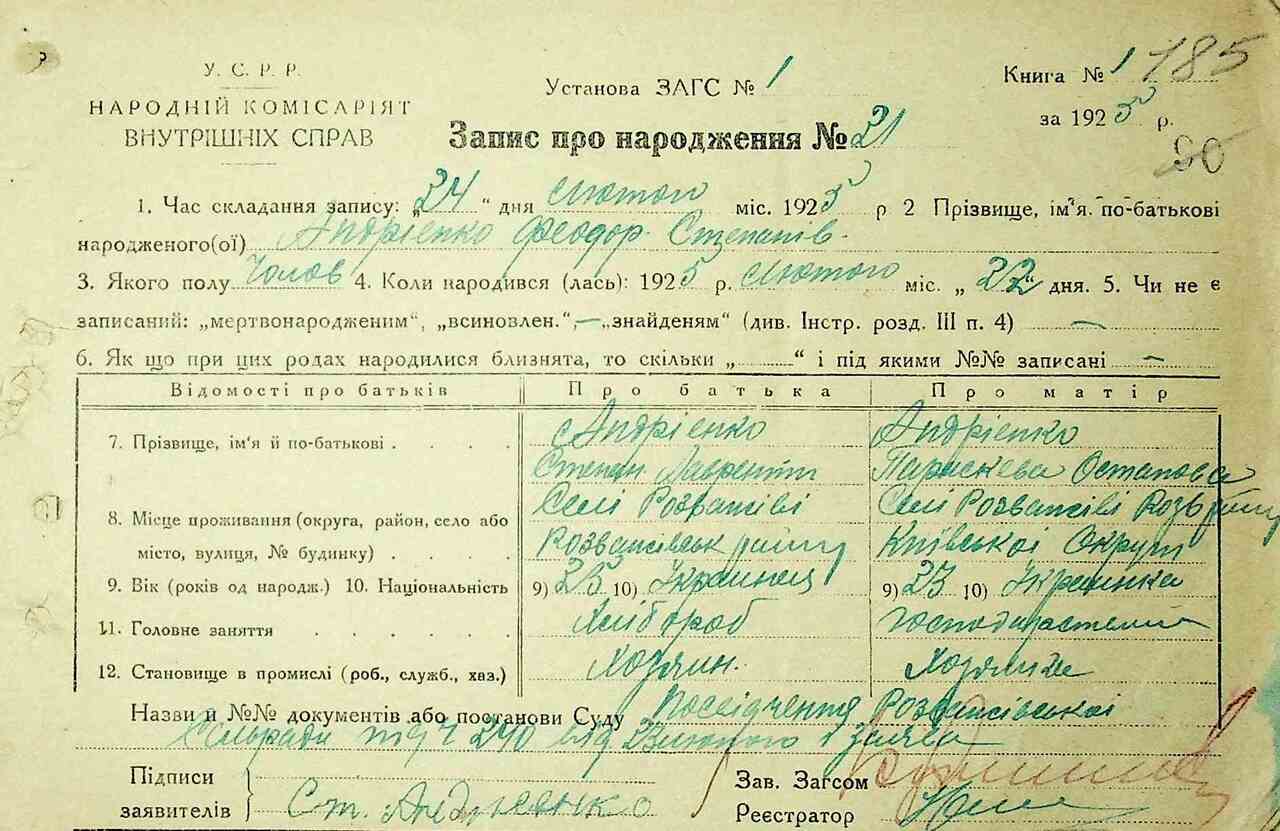 У. С. Р. Р.
НАРОДНІЙ КОМІСАРІЯТ
ВНУТРІШНІХ СПРАВ
Установа ЗАГС № 1
Книга № 1 185
за 1925 р.
90
Запис про народження № 21
1. Час складання запису: „24“ дня лютого міс. 1925 р 2 Прізвище, ім'я по-батькові
народженого(ої) Андрієнко Феодор Степанів
3. Якого полу Чолов 4. Коли народився (лась): 1925 р. лютого міс. „22“ дня. 5. Чи не є
записаний: „мертвонародженим“, „всиновлен.“, — „знайденям“ (див. Інстр. розд. III п. 4) —
6. Як що при цих родах народилися близнята, то скільки „ “ і під якими №№ записані —
Відомості про батьків Про батька Про матір
7. Прізвище, ім'я й по-батькові Андрієнко Андрієнко
Степан Лаврентів Параскева Остапова
8. Місце проживання (округа, район, село або Селі Розважіві Селі Розважіві
місто, вулиця, № будинку) Розважівськ району Київської Округи
9. Вік (років од народж.) 10. Національність 9) 25 10) Українец 9) 23 10) Українка
11. Головне заняття Хлібороб
12. Становище в промислі (роб., служб., хаз.) Хозяин Хозяйка
Назви й №№ документів або постанови Суду Посвідчення Розважівської
Сільради 240 від 23 лютого і заява
Підписи
заявителів Ст. Андрієнко
Зав. Загсом
Реєстратор